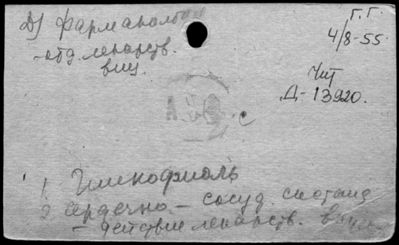 Д) Фармакология
Г. Г.
4/8-55.
-отд. лекарств.
вещ.
Чит
Д-13920.
с
1 Гликофиоль
2 Сердечно - сосуд. система
- действие лекарств. вещ.